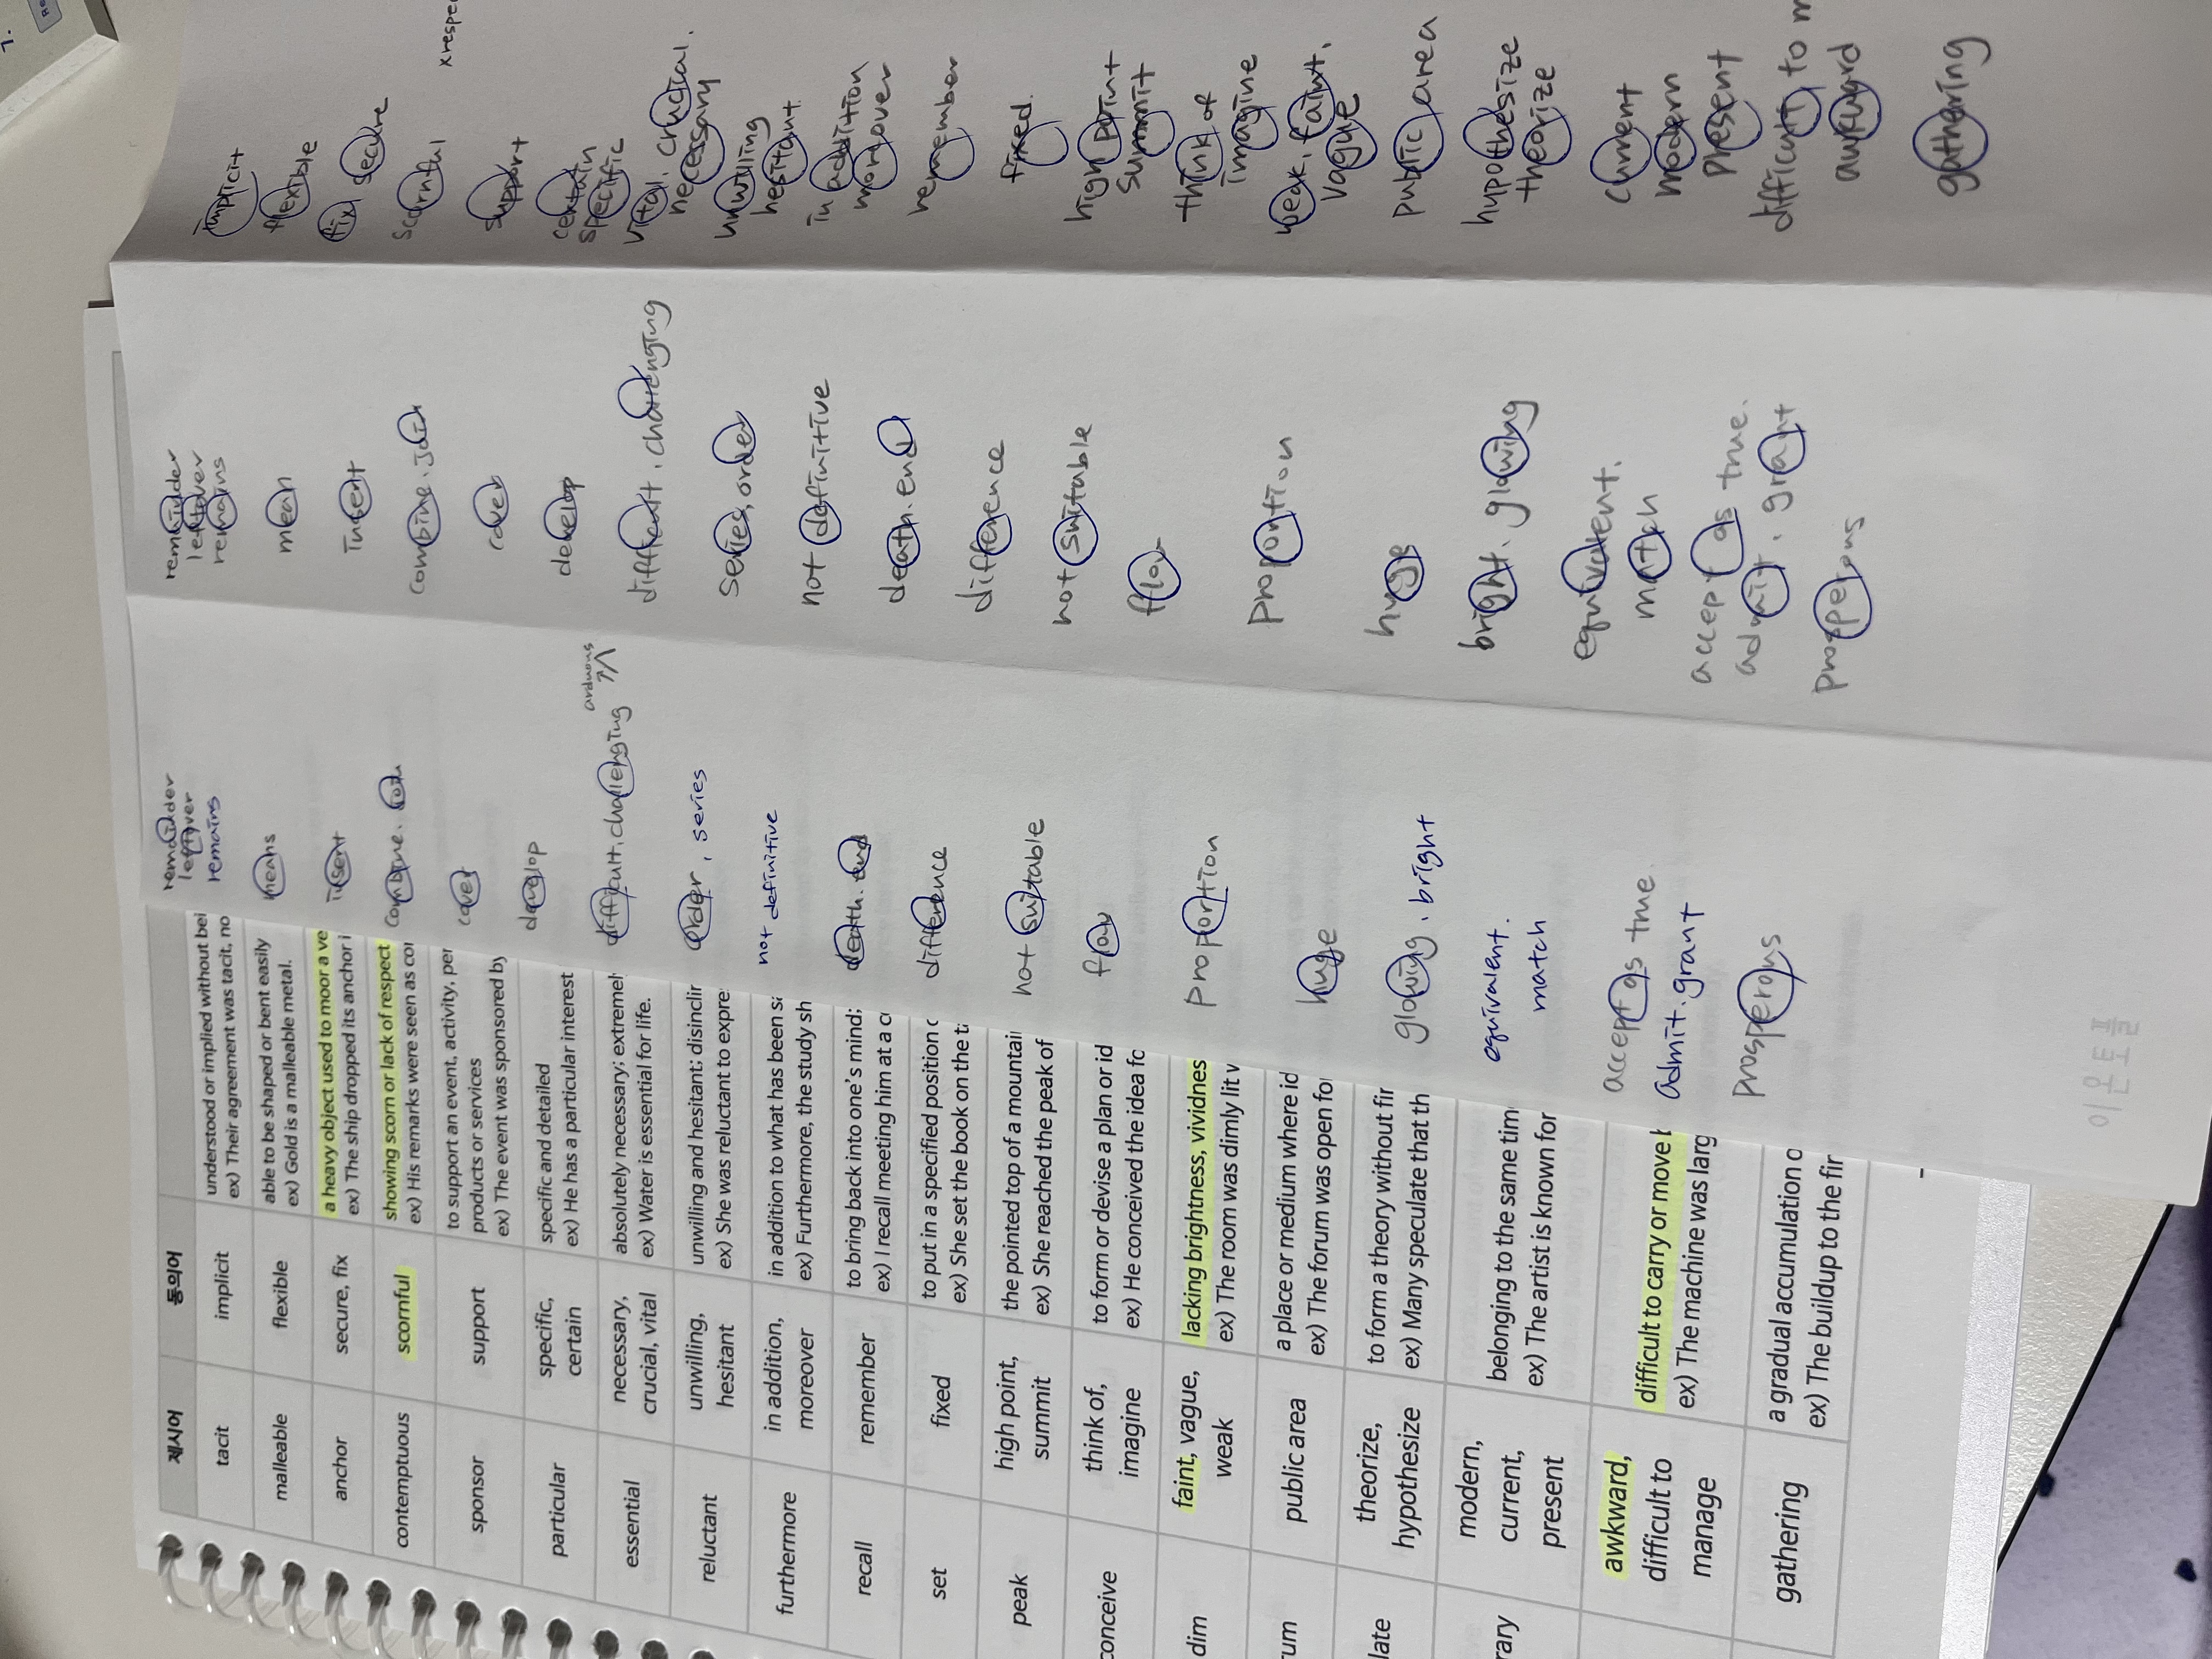 제시어
동의어
tacit
implicit
understood or implied without bei
ex) Their agreement was tacit, no
malleable
flexible
able to be shaped or bent easily
ex) Gold is a malleable metal.
anchor
secure, fix
a heavy object used to moor a ve
ex) The ship dropped its anchor i
contemptuous
scornful
showing scorn or lack of respect
ex) His remarks were seen as con
sponsor
support
to support an event, activity, per
products or services
ex) The event was sponsored by
particular
specific,
certain
specific and detailed
ex) He has a particular interest
essential
necessary,
crucial, vital
absolutely necessary; extremel
ex) Water is essential for life.
reluctant
unwilling,
hesitant
unwilling and hesitant; disinclin
ex) She was reluctant to expre
furthermore
in addition,
moreover
in addition to what has been sa
ex) Furthermore, the study sh
recall
remember
to bring back into one's mind;
ex) I recall meeting him at a c
set
fixed
to put in a specified position o
ex) She set the book on the t
peak
high point,
summit
the pointed top of a mountai
ex) She reached the peak of
conceive
think of,
imagine
to form or devise a plan or id
ex) He conceived the idea fo
dim
faint, vague,
weak
lacking brightness, vividnes
ex) The room was dimly lit w
rum
public area
a place or medium where id
ex) The forum was open fo
late
theorize,
hypothesize
to form a theory without fir
ex) Many speculate that th
rary
modern,
current,
present
belonging to the same tim
ex) The artist is known for
awkward,
difficult to
manage
difficult to carry or move b
ex) The machine was larg
gathering
a gradual accumulation o
ex) The buildup to the fir
remainder
leftover
remains
means
insert
combine. join
cover
develop
difficult, challenging
arduous
order, series
not definitive
death. end
difference
not suitable
flow
proportion
huge
glowing. bright
equivalent.
match
accept as true
admit. grant
prosperous
remainder
leftover
remains
mean
insert
combine. join
cover
develop
difficult, challenging
series, order
not definitive
death. end
difference
not suitable
flow
proportion
huge
bright. glowing
equivalent.
match
accept as true.
admit. grant
prosperous
implicit
flexible
fix, secure
scornful
xrespec
support
certain
specific
vital. crucial.
necessary
unwilling
hesitant.
in addition
moreover
remember
fixed.
high point
summit
think of
imagine
weak. faint.
vague
public area
hypothesize
theorize
current
modern
present
difficult to m
awkward
gathering